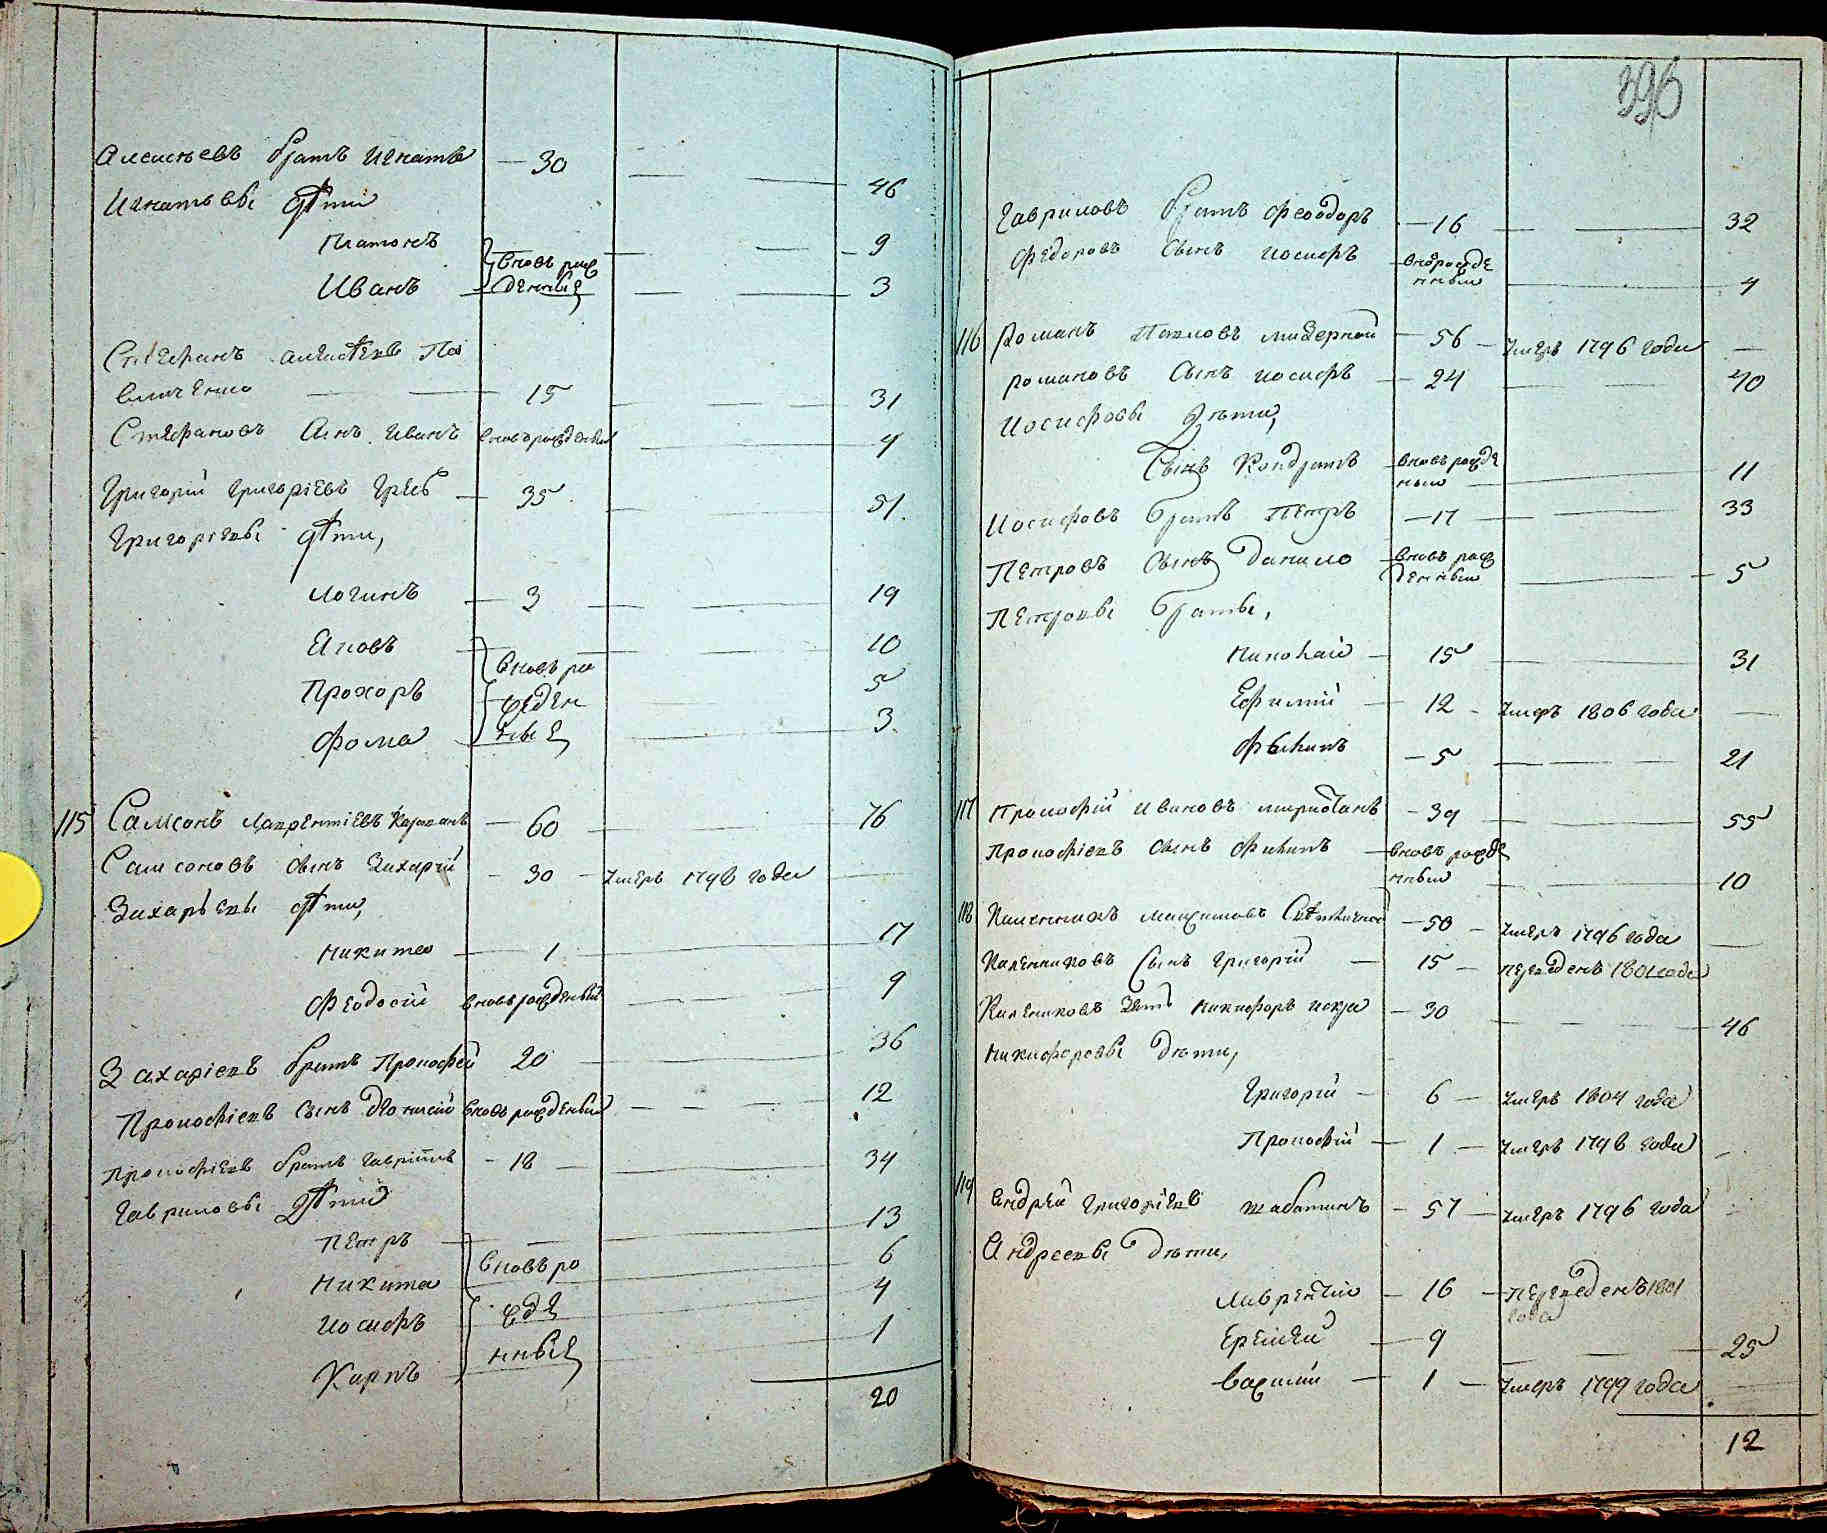 Алексѣевъ братъ Игнатъ — 30 — 46
Игнатьевы дѣти
Платонъ — 9
вновь рож
Иванъ денныя — 3
Стефанъ Алексѣевъ Па
вличенко — 15 — 31
Стефановъ Сынъ Иванъ вновьрожденный — 4
Григорій Григоріевъ — 35 — 51
Григоріевы дѣти,
Логинъ — 3 — 19
Яковъ — 10
вновь ро
Прохоръ — 5
жден
Фома ныя — 3
115 Самсонъ Лаврентіевъ — 60 — 76
Самсоновъ сынъ Захарій — 30 — умеръ 1796 года —
Захарьевы дѣти,
Никита — 1 — 17
Феодосій вновьрожденный — 9
Захаріевъ братъ Прокофей 20 — 36
Прокофіевъ сынъ Деонисій вновь рожденный — 12
Прокофіевъ братъ Гавріилъ — 18 — 34
Гавриловы дѣти
Петръ — 13
вновь ро
Никита — 6
жде
Иосифъ — 4
нныя
Карпъ — 1
20
396
Гавриловъ братъ Феодоръ — 16 — 32
Федоровъ Сынъ Иосифъ — вноврожде
нный — 4
116 Романъ Павловъ — 56 — умеръ 1796 года —
Романовъ Сынъ Иосифъ — 24 — 40
Иосифовы дѣти,
Сынъ Кондратъ — вновь рожде
ный — 11
Иосифовъ братъ Петръ — 17 — 33
Петровъ Сынъ Данило — вновь рож
денный — 5
Петровы братья,
Николай — 15 — 31
Ефимій — 12 — умеръ 1806 года —
— 5 — 21
117 Прокофій Ивановъ — 39 — 55
Прокофіевъ сынъ — вновь рожде
нный — 10
118 Каленникъ Максимовъ — 50 — умеръ 1796 года —
Каленниковъ Сынъ Григорій — 15 — переведенъ 1801 года
Калениковъ Зять Никифоръ Искра — 30 — 46
Никифоровы дѣти,
Григорій — 6 — умеръ 1804 года
Прокофій — 1 — умеръ 1796 года —
119 Андрей Григоріевъ Шаботинъ — 57 — умеръ 1796 года
Андреевы дѣти,
Лаврентій — 16 — переведенъ 1801
года
Еремей — 9 — 25
Василій — 1 — умеръ 1799 года
12